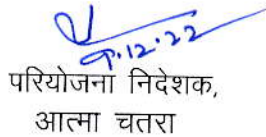 9.12.22
परियोजना निदेशक,
आत्मा चतरा